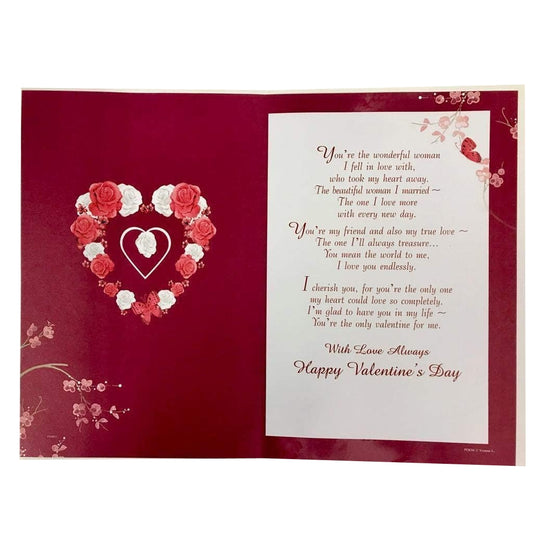 You're the wonderful woman
I fell in love with,
who took my heart away.
The beautiful woman I married ~
The one I love more
with every new day.
You're my friend and also my true love ~
The one I'll always treasure...
You mean the world to me,
I love you endlessly.
I cherish you, for you're the only one
my heart could love so completely.
I'm glad to have you in my life ~
You're the only valentine for me.
With Love Always
Happy Valentine's Day